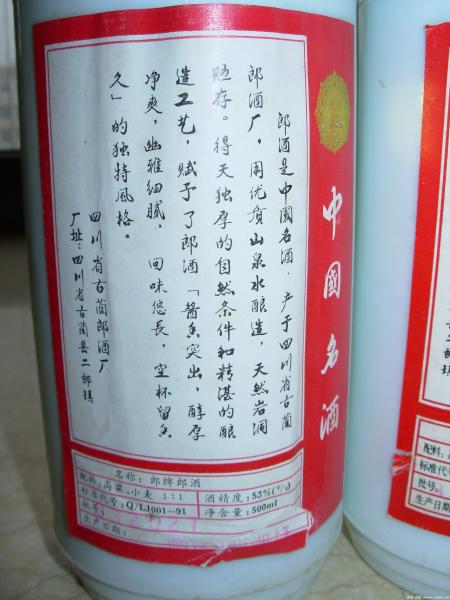 中國名酒
郎酒是中國名酒．产于四川省古蔺
郎酒厂，用优质山泉水酿造，天然岩洞
贮存。得天独厚的自然条件和精湛的酿
造工艺，赋予了郎酒「酱香突出，醇厚
净爽，幽雅细腻，回味悠長，空杯留香
久」的独特風格。
四川省古蔺郎酒厂
厂址：四川省古蔺县二郎滩
名称：郎牌郎酒
配料：高粱、小麦 1：1
酒精度：53%(V/V)
标准代号：Q/LJ001—91
净含量：500ml
批号：
生产日期：
配料：
标准代号
批号
生产日期